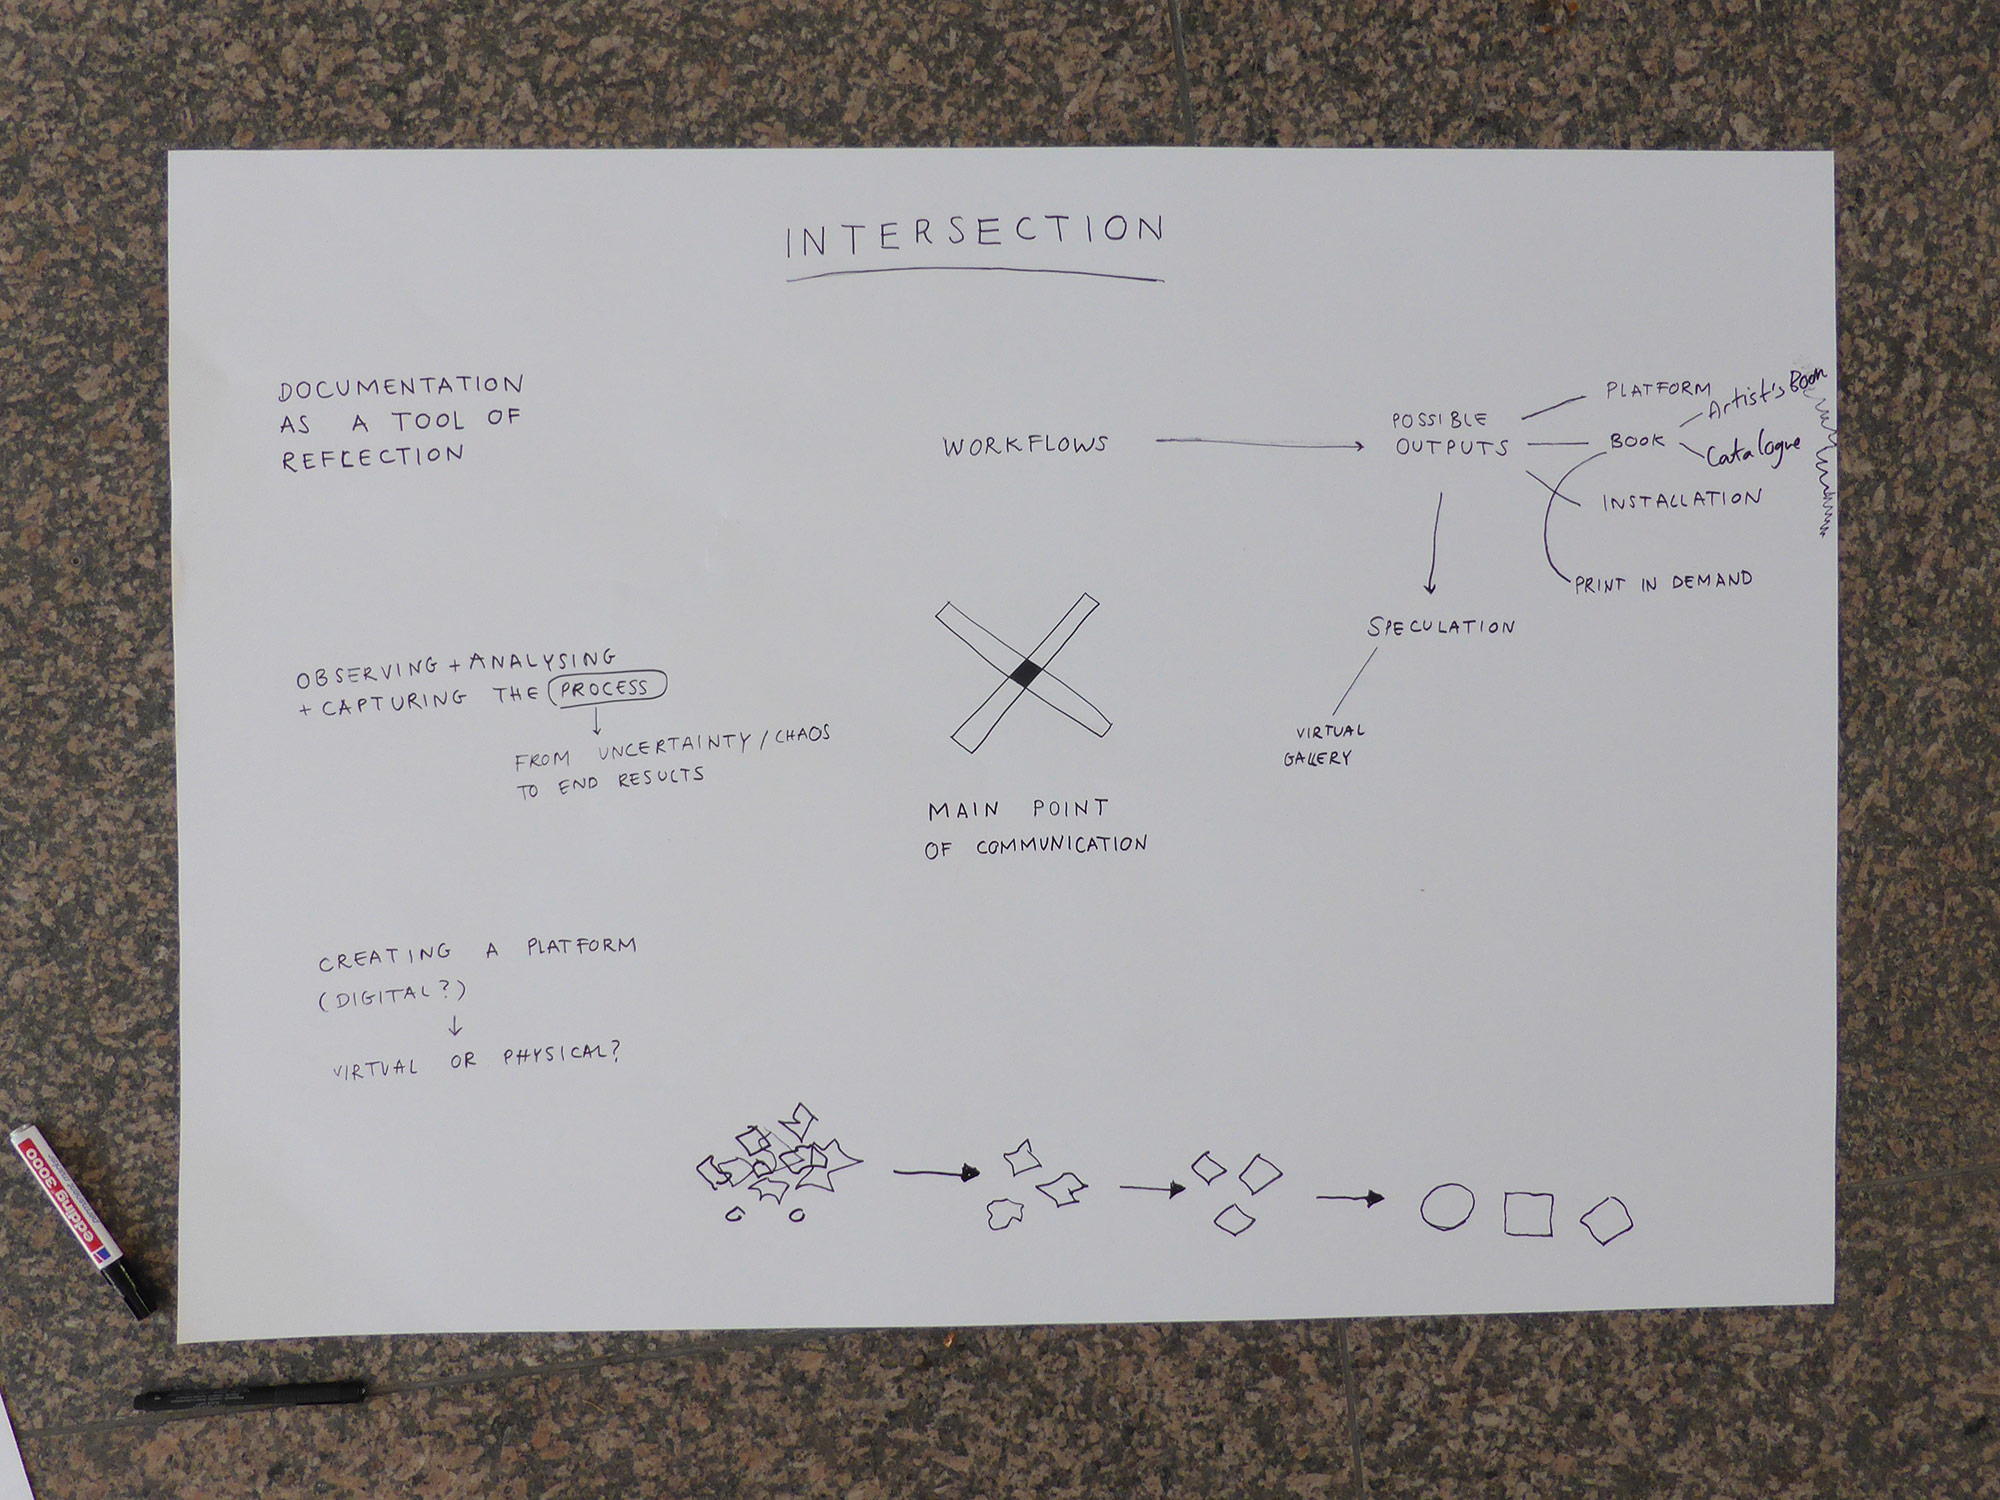 INTERSECTION
DOCUMENTATION
AS A TOOL OF
REFLECTION
WORKFLOWS
POSSIBLE
OUTPUTS
PLATFORM
BOOK
Artist's Book
Catalogue
INSTALLATION
PRINT IN DEMAND
SPECULATION
VIRTUAL
GALLERY
OBSERVING + ANALYSING
+ CAPTURING THE PROCESS
FROM UNCERTAINTY / CHAOS
TO END RESULTS
MAIN POINT
OF COMMUNICATION
CREATING A PLATFORM
(DIGITAL?)
VIRTUAL OR PHYSICAL?
edding 3000
permanent marker